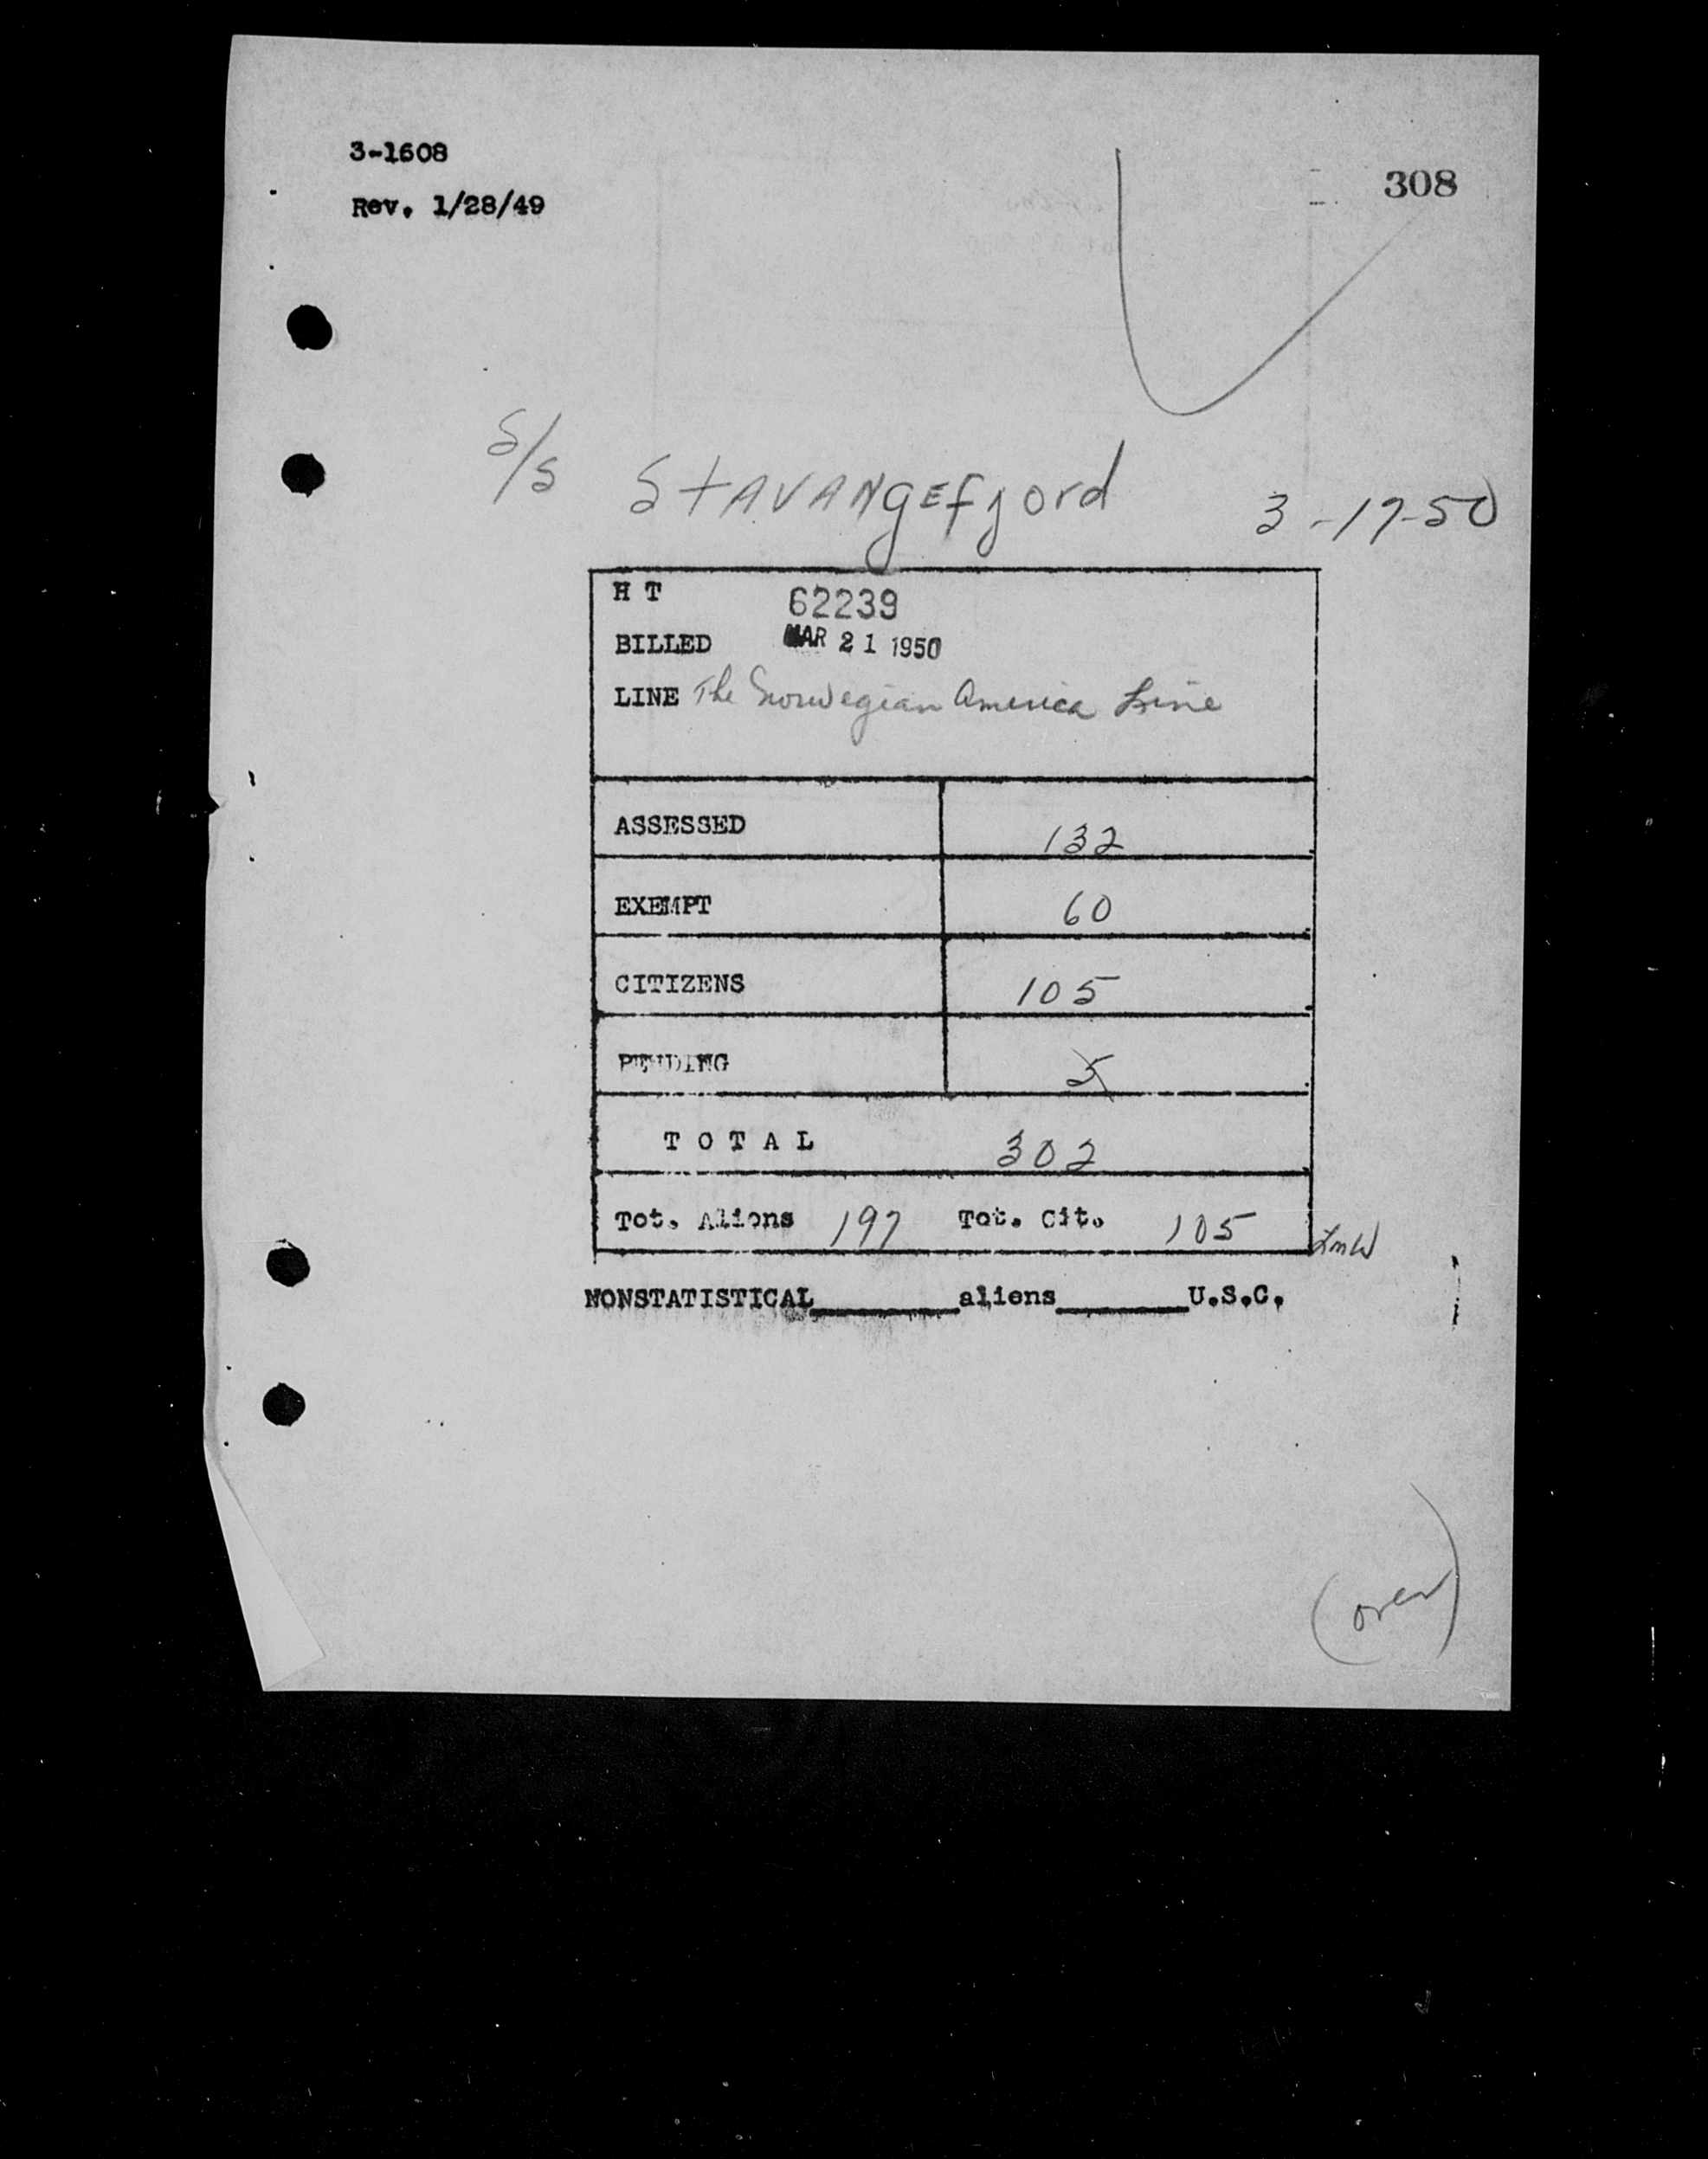 3-1608
308
Rev. 1/28/49
S/S StAVANgEfjord 3-17-50
H T 62239
BILLED MAR 21 1950
LINE The Norwegian America Line
ASSESSED 132
EXEMPT 60
CITIZENS 105
PENDING 5
T O T A L 302
Tot. Aliens 197 Tot. Cit. 105
LmW
NONSTATISTICAL________aliens________U.S.C.
(over)